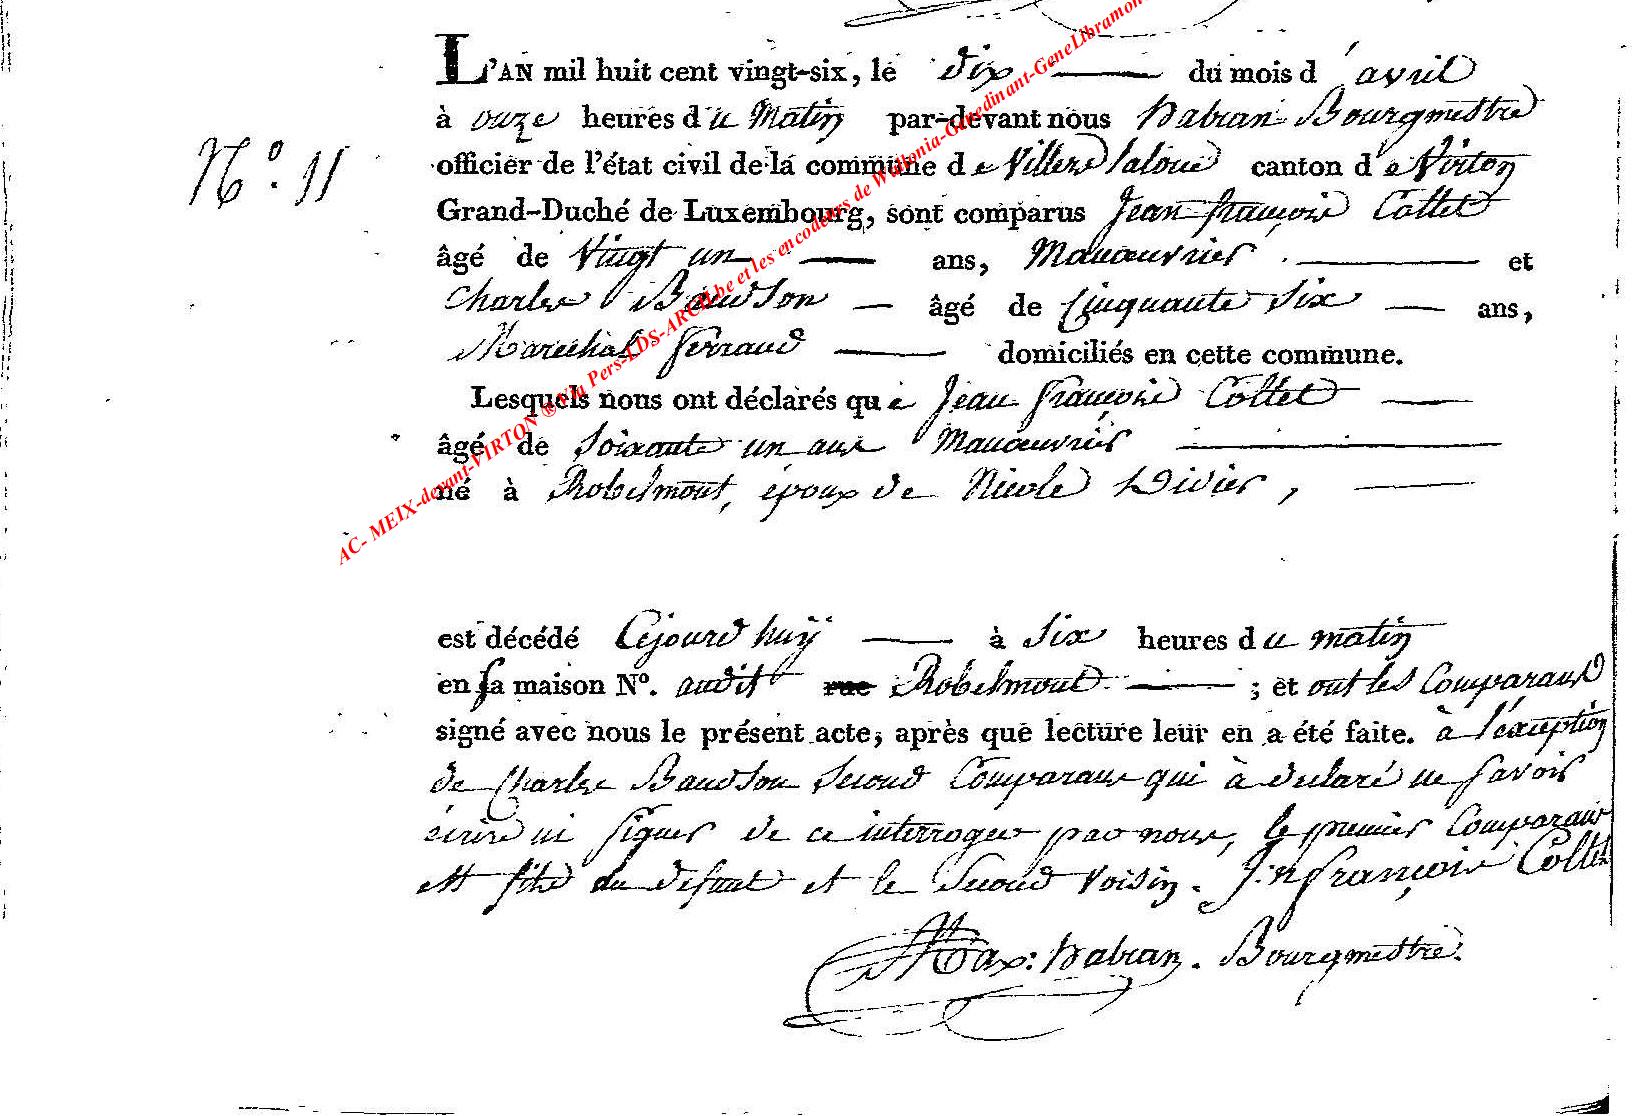 L'AN mil huit cent vingt-six, le dix du mois d'avril
à onze heures du Matin par-devant nous habran Bourgmestre
officier de l'état civil de la commune de Villers laloue canton de Virton
Grand-Duché de Luxembourg, sont comparus Jean françois Collet
N.° 11
âgé de Vingt un ans, Manœuvrier et
Charles Baudson âgé de Cinquante Six ans,
Marechal ferrand domiciliés en cette commune.
Lesquels nous ont déclarés que Jean françois Collet
âgé de Soixante un ans Manœuvrier
né à Robelmont, époux de Nicole Didier,
est décédé Cejourd'huÿ à Six heures du matin
en sa maison N°. audit rue Robelmont ; et ont les Comparans
signé avec nous le présent acte, après que lecture leur en a été faite. à l'exception
de Charles Baudson Second Comparant qui à declaré ne savoir
écrire ni signer de ce interroger par nous, le premier Comparant
est fils du defunt et le Second Voisin. J:n françois Collet
Max: habran. Bourgmestre.
AC- MEIX-devant-VIRTON ® Via Pers-LDS-ARCH.be et les encodeurs de Wallonia-Genedinant-GeneLibramon